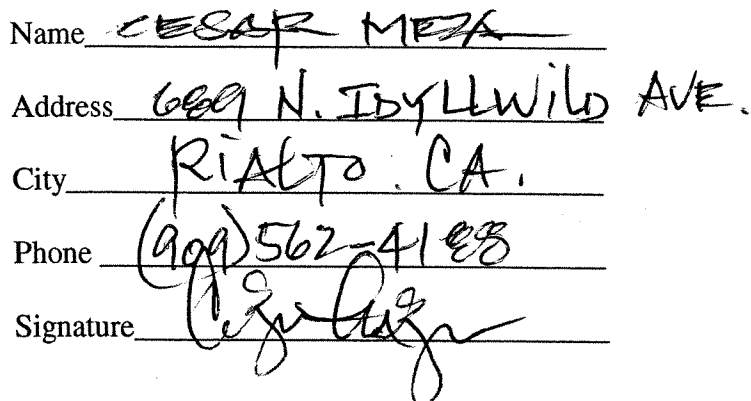 Name CESAR MEZA
Address 689 N. IDYLLWILD AVE.
City RIALTO. CA.
Phone (909)562-4188
Signature